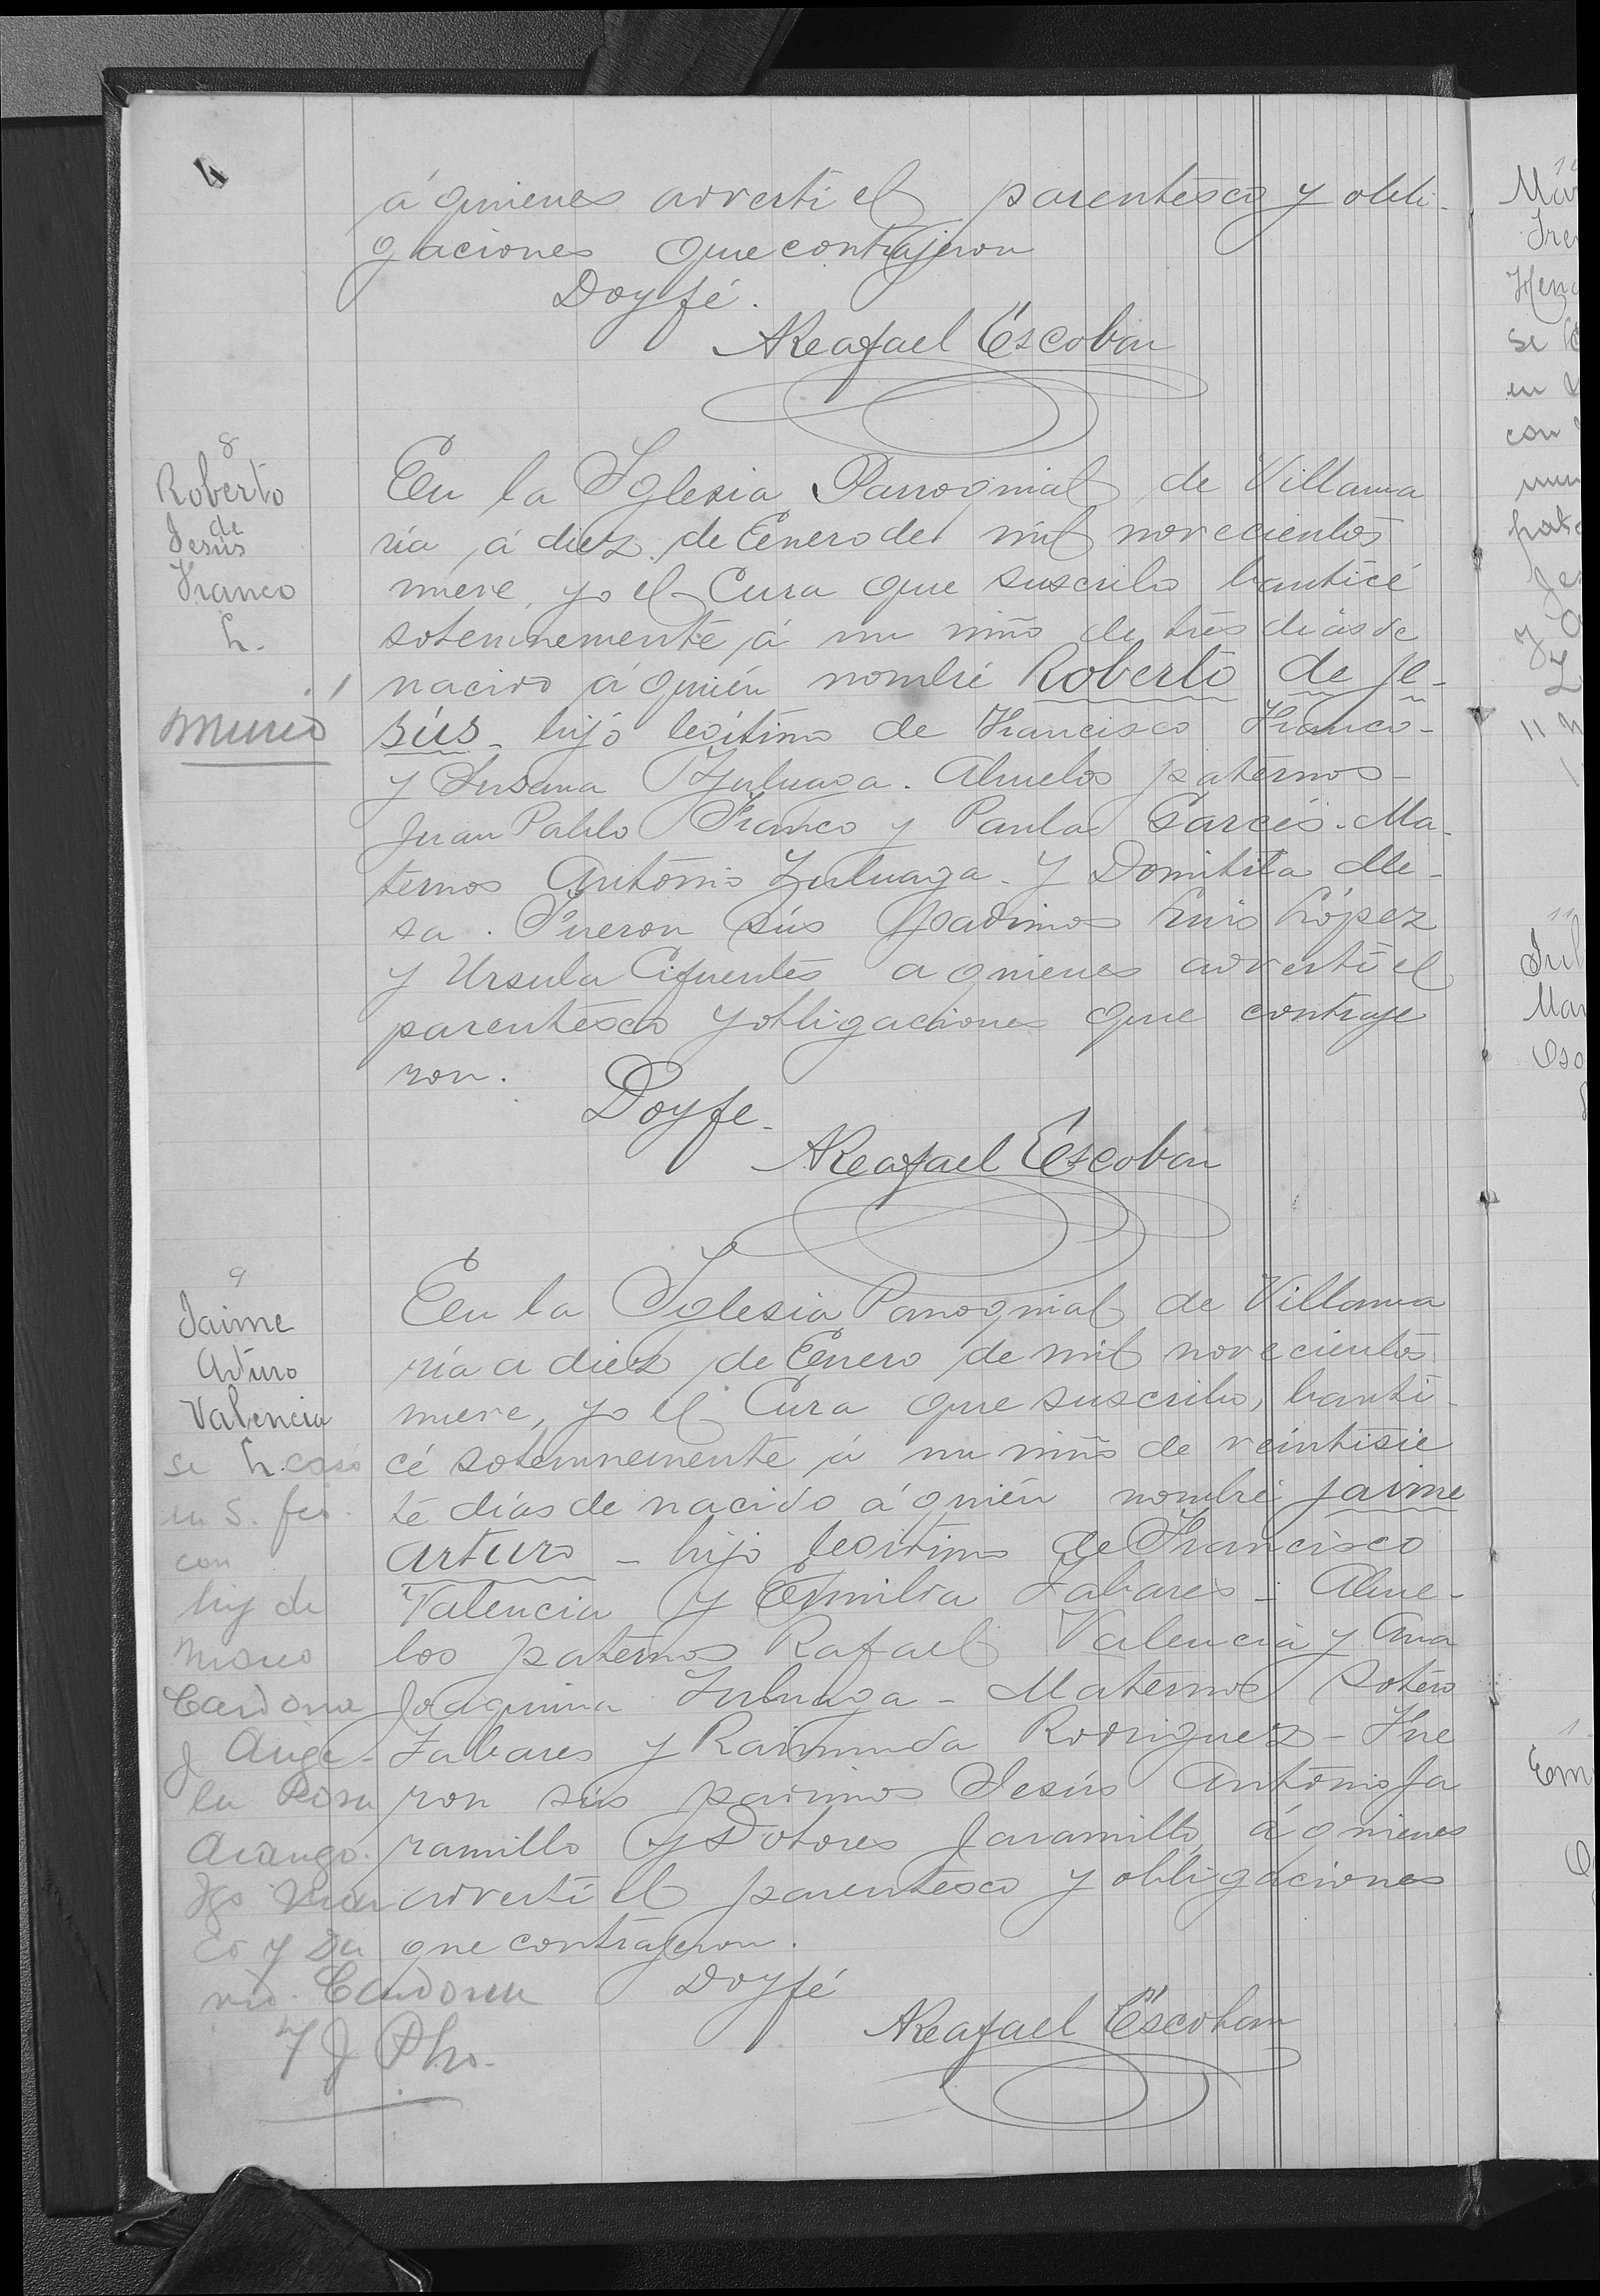 4
á quienes adverti el parentesco y obli-
gaciones que contrajeron
Doy fé.
NReafael Escobar
8
Roberto
de
Jesús
Franco
L.
murió
En la Iglesia Parroquial de Villama
ría á diez de Enero de mil novecientos
nueve, yo el Cura que suscribo bauticé
solemnemente á un niño de tres dias de
nacido á quién nombré Roberto de Je-
sús - hijo legítimo de Francisco Franco -
y Susana Zuluaga. Abuelos paternos -
Juan Pablo Franco y Paula Garcés. Ma-
ternos Antonio Zuluaga - y Domitila Me-
sa. Fueron sús padrinos Luis López
y Ursula Cifuentes a quienes advertí el
parentesco y obligaciones que contraje
ron.
Doy fe -
NReafael Escobar
9
Jaime
Arturo
Valencia
L.
se casó
en S. fco.
con
hij de
Marco
Cardona
y Ange-
la Rosa
Arango.
En la Iglesia Parroquial de Villama
ría a diez de Enero de mil novecientos
nueve, yo el Cura que suscribo, bauti-
cé solemnemente á un niño de veintisie
te días de nacido á quién nombré Jaime
Arturo - hijo legitimo de Francisco
Valencia y Emilia Tabares - Abue-
los paternos Rafael Valencia y Ana
Joaquina Zuluaga - Maternos Sotero
Tabares y Raimunda Rodriguez - Fue
ron sús padrinos Jesús Antonio Ja
ramillo y Dolores Jaramillo á quienes
advertí el parentesco y obligaciones
que contrajeron.
Doy fé
NReafael Escobar
Cardona
J Pbro.